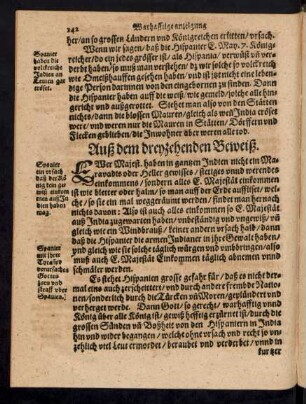 242 Warhafftige anzeigung
her/an so grossen Ländern vnd Königreichen erlitten/vrsach.
Spanier haben die volckreiche Indien an Leuten gar erösst.
Wenn wir sagen/daß die Hispanier E. May. 7. König-
reiche/do ein jedes grösser ist/als Hispania/verwüst vñ ver-
derbet haben/so muß man verstehen/dz wir solche so volckreich
wie Omeißhauffen gesehen haben/in denen jetzt/nicht eine le-
bendige Person darumen von den eingebornen zu finden. Dann
die Hispanier haben auff die weiß/wie wir gehört/alle jämmer-
licher vnd außgerottet. Stehet man also von den Stätten
nichts/dann die blossen Mauren/gleich als weñ India erösset
were/vnd weren nur die Mauren in Stätten/Dörffern vnd
Flecken geblieben/die Inwohner aber weren alle tod.
Auß dem dreyzehenden Beweiß.
Spanier ein vrsach/ daß der Kö-
nig kein gewiß einkommen auß Indien haben mag.
EWer Majest. haben in gantzen Indien nicht ein Ma-
ravadis oder Heller gewisses/stetiges vnnd werendes
Einkommens/sondern alles E. Majestät einkommen
ist wie bletter oder halm/so man auff der Erde auffliset/wel-
che/so sie ein mal weggeräumet werden/findet man hernacher
nichts davon: Also ist auch alles einkommen so E. Majestät
auß India zugewarten haben/vnbeständig vnd vngewiß/vñ
gleich wie ein Windbrauß/keiner andern vrsach halb/dann
daß die Hispanier die armen Indianer in jhre gewalt haben/
vnd gleich wie sie solche täglich würgen vnd ombbringen/also
muß auch E. Majestät Einkommen täglich abnemen vnnd
schmäler werden.
Spanier mit jhrer Tyranney verursachen Gottes zorn vnd straff vber Spanien.
Es stehet Hispanien grosse gefahr für/daß es nicht der-
mal eins auch zerscheittert/vnd durch andere frembde Natio-
nen/sonderlich durch die Türcken vñ Moren/geplündert vnd
verherget werde. Dann Gott/so gerecht/warhafftig vnnd
König über alle König ist/gewiß hefftig erzürnet ist/durch die
grossen Sünden vñ Boßheit von den Hispaniern in India
hin vnd wider begangen/welche ohne vrsach vnd recht so vn-
zehlich viel Leut ermordet/beraubet vnd verderbet/vnnd in
kurtzer